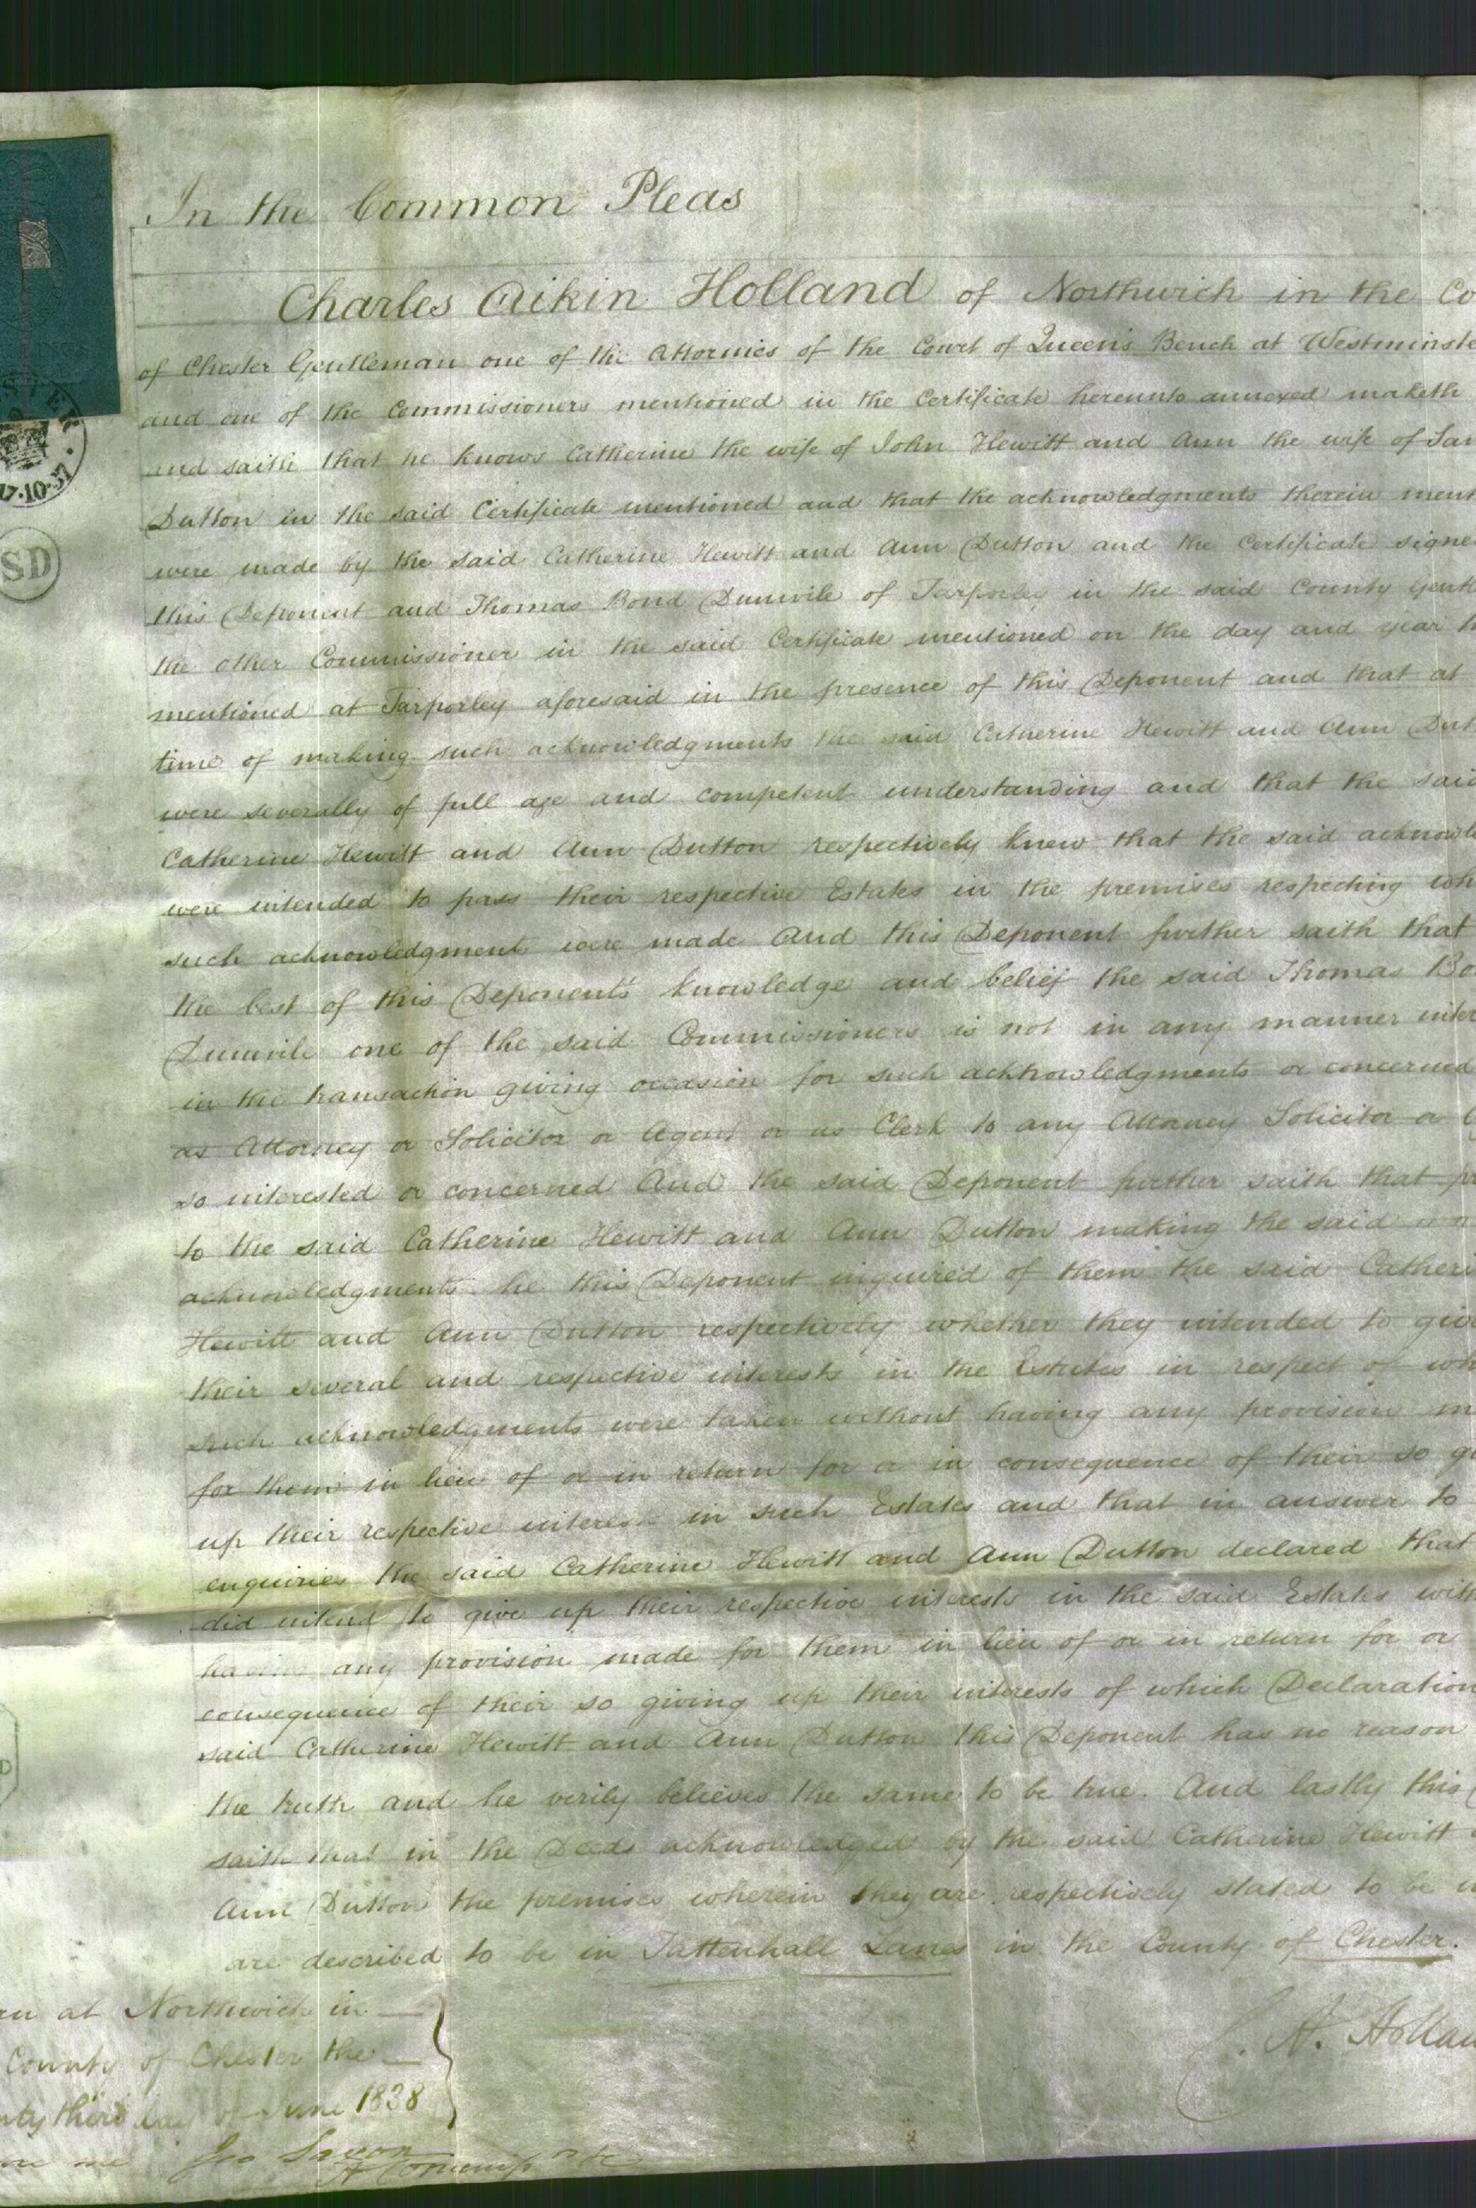 In the Common Pleas
Charles Aikin Holland of Northwich in the Co
of Chester Gentleman one of the Attornies of the Court of Queen's Bench at Westminste
and one of the Commissioners mentioned in the Certificate hereunto annexed maketh
and saith that he knows Catherine the wife of John Hewitt and Ann the wife of Sam
Dutton in the said Certificate mentioned and that the acknowledgments therein ment
were made by the said Catherine Hewitt and Ann Dutton and the Certificate signe
this Deponent and Thomas Bond Dunvile of Tarporley in the said County Gent
the other Commissioner in the said Certificate mentioned on the day and year th
mentioned at Tarporley aforesaid in the presence of this Deponent and that at
time of making such acknowledgments the said Catherine Hewitt and Ann Dut
were severally of full age and competent understanding and that the said
Catherine Hewitt and Ann Dutton respectively knew that the said acknowle
were intended to pass their respective Estates in the premises respecting wh
such acknowledgments were made And this Deponent further saith that
the best of this Deponent's knowledge and belief the said Thomas Bo
Dunvile one of the said Commissioners is not in any manner inter
in the transaction giving occasion for such acknowledgments or concerned
as Attorney or Solicitor or Agent or as Clerk to any Attorney Solicitor or A
so interested or concerned And the said Deponent further saith that pr
to the said Catherine Hewitt and Ann Dutton making the said
acknowledgments he this Deponent inquired of them the said Catheri
Hewitt and Ann Dutton respectively whether they intended to give
their several and respective interests in the Estates in respect of wh
such acknowledgments were taken without having any provision m
for them in lieu of or in return for or in consequence of their so gi
up their respective interests in such Estates and that in answer to
enquiries the said Catherine Hewitt and Ann Dutton declared that
did intend to give up their respective interests in the said Estates with
having any provision made for them in lieu of or in return for or
consequence of their so giving up their interests of which Declaration
said Catherine Hewitt and Ann Dutton this Deponent has no reason
the truth and he verily believes the same to be true. And lastly this
saith that in the Deeds acknowledged by the said Catherine Hewitt
Ann Dutton the premises wherein they are respectively stated to be
are described to be in Tattenhall Lanes in the County of Chester.
C. A. Hollan
rn at Northwich in
County of Chester the
nty third day of June 1838
ore me Geo Saxon
A Commissr &c
STER
17·10·37
SD
D